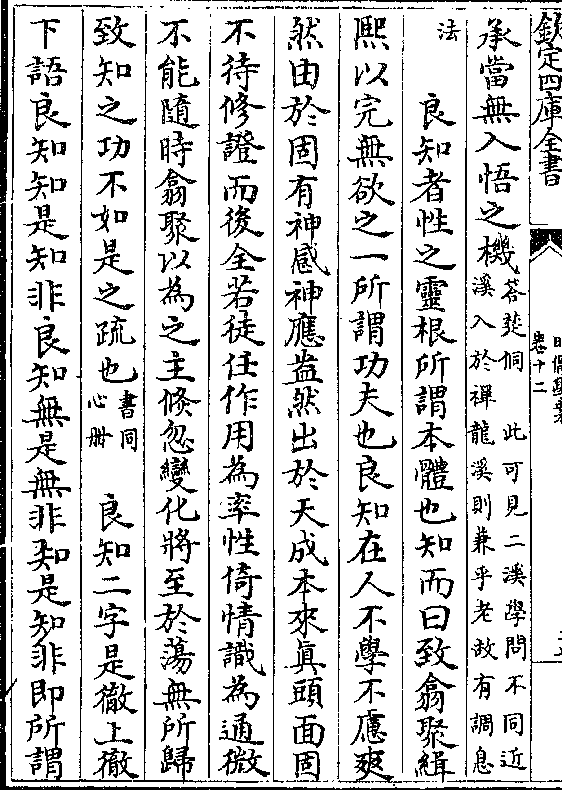 欽定四庫全書
卷十二
承當無入悟之機答楚侗 此可見二溪學問不同近溪入於禪龍溪則兼乎老故有調息
法
良知者性之靈根所謂本體也知而曰致翕聚緝
熙以完無欲之一所謂功夫也良知在人不學不慮爽
然由於固有神感神應盎然出於天成本來真頭面固
不待修證而後全若徒任作用為率性倚情識為通微
不能隨時翕聚以為之主倐忽變化將至於蕩無所歸
致知之功不如是之疏也書同心冊 良知二字是徹上徹
下語良知知是知非良知無是無非知是知非即所謂